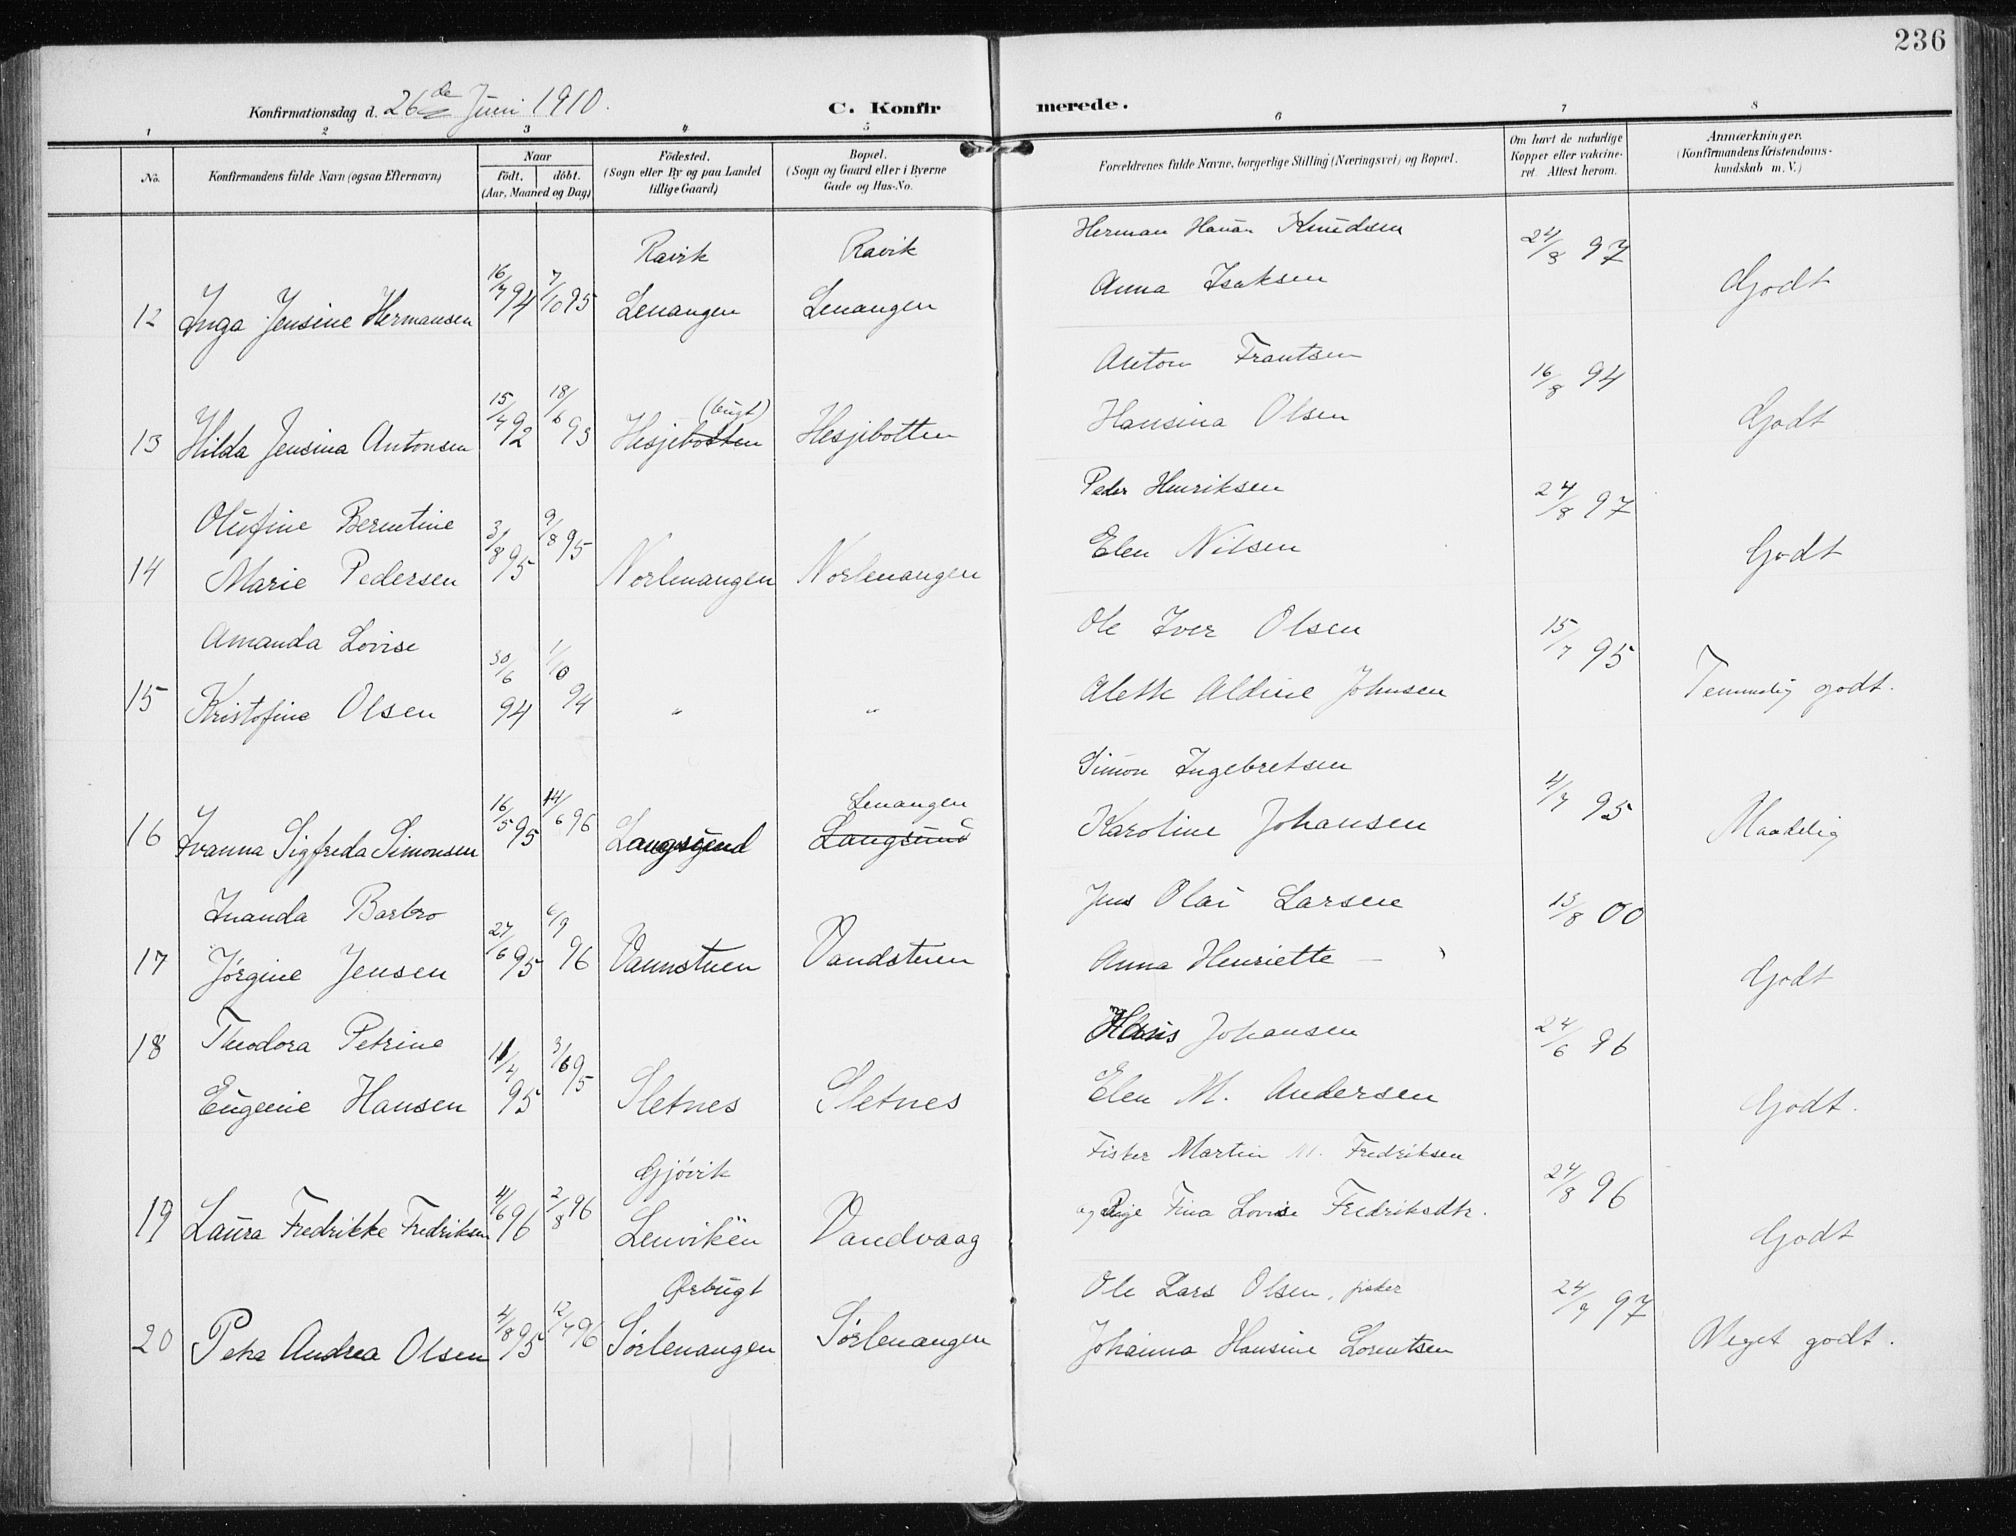 236
Konfirmationsdag d. 26de Juni 1910.
C. Konfirmerede.
1 2 3 4 5 6 7 8
No. Konfirmandens fulde Navn (ogsaa Efternavn)
Naar
födt. döbt.
(Aar, Maaned og Dag)
Födested.
(Sogn eller By og paa Landet
tillige Gaard)
Bopæl.
(Sogn og Gaard eller i Byerne
Gade og Hus-No.
Forældrenes fulde Navne, borgerlige Stilling (Næringsvei) og Bopæl.
Om havt de naturlige
Kopper eller vakcine-
ret. Attest herom.
Anmærkninger.
(Konfirmandens Kristendoms-
kundskab m. V.)
Ravik Ravik Herman Knudsen 24/8 97
12 Inga Jensine Hermansen 16/7 94 7/10 95 Lenangen Lenangen Anna Isaksen Godt
Anton Frantsen 16/8 94
(bugt)
13 Hilda Jensina Antonsen 15/7 92 18/6 93 Hesjebotten Hesjibotten Hansina Olsen Godt
Olufine Berntine Peder Henriksen 24/8 97
14 Marie Pedersen 3/8 95 9/8 95 Norlenangen Norlenangen Elen Nilsen Godt
Amanda Lovise Ole Iver Olsen 15/7 95
15 Kristofine Olsen 30/6 94 1/10 94 " " Aleth Aldine Johnsen Temmelig godt.
Simon Ingebretsen 4/7 95
Lenangen
16 Ivanna Sigfreda Simonsen 16/5 95 14/6 96 Langsund Langsund Karoline Johansen Maadelig
Inanda Barbro Jens Olai Larsen 13/8 00
17 Jørgine Jensen 27/6 95 6/9 96 Vannstuen Vandstuen Anna Henriette — Godt
18 Theodora Petrine Hans Johansen 24/6 96
Eugenie Hansen 11/4 95 3/6 95 Sletnes Sletnes Elen M. Andersen Godt.
Gjøvik Fisker Martin M. Fredriksen 24/8 96
19 Laura Fredrikke Fredriksen 4/6 96 2/8 96 Lenviken Vandvaag og Pige Tina Lovise Fredriksdtr. Godt
Ørbugt Ole Lars Olsen, fisker 24/9 97
20 Petra Andrea Olsen 4/8 95 12/7 96 Sørlenangen Sørlenangen Johanna Hansine Lorentsen Meget godt.